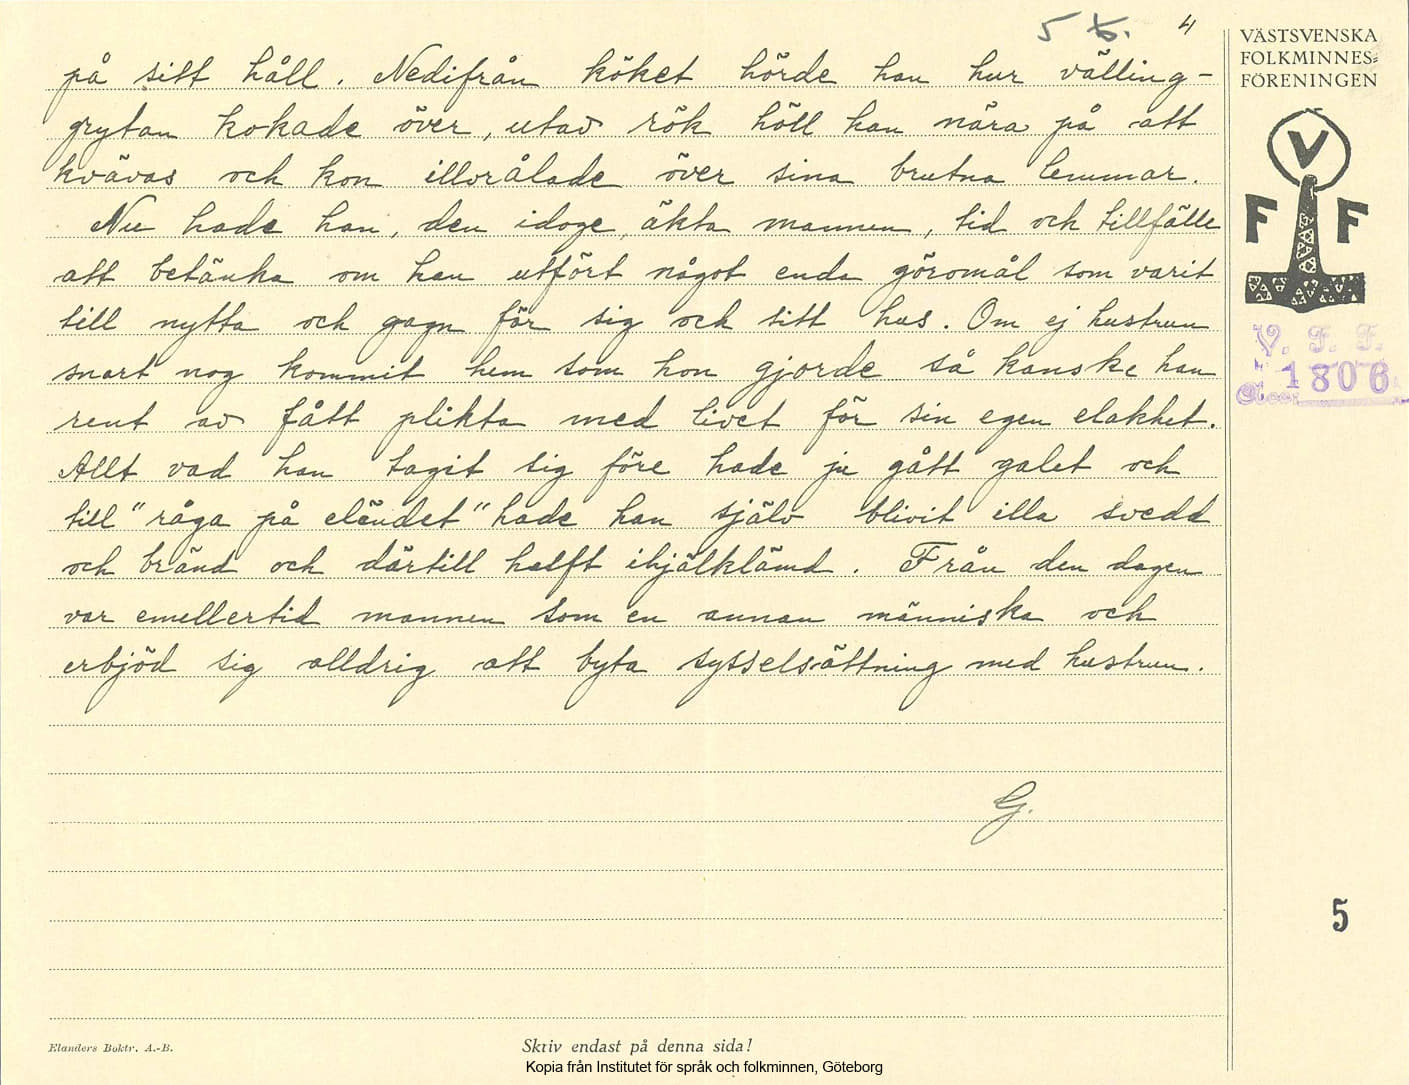 5 6. 4
på sitt håll. Nedifrån köket hörde han hur välling-
grytan kokade över, utav rök höll han nära på att
kvävas och kon illvrålade över sina brutna lemmar.
Nu hade han, den idoge, äkta mannen, tid och tillfälle
att betänka om han utfört något enda göromål som varit
till nytta och gagn för sig och sitt hus. Om ej hustrun
snart nog kommit hem som hon gjorde så kanske han
rent av fått plikta med livet för sin egen elakhet.
Allt vad han tagit sig före hade ju gått galet och
till "råga på eländet" hade han själv blivit illa svedd
och bränd och därtill halft ihjälklämd. Från den dagen
var emellertid mannen som en annan människa och
erbjöd sig alldrig att byta sysselsättning med hustrun.
G.
VÄSTSVENSKA
FOLKMINNES=
FÖRENINGEN
V
F F
V. F. F.
1806
5
Elanders Boktr. A.-B.
Skriv endast på denna sida!
Kopia från Institutet för språk och folkminnen, Göteborg